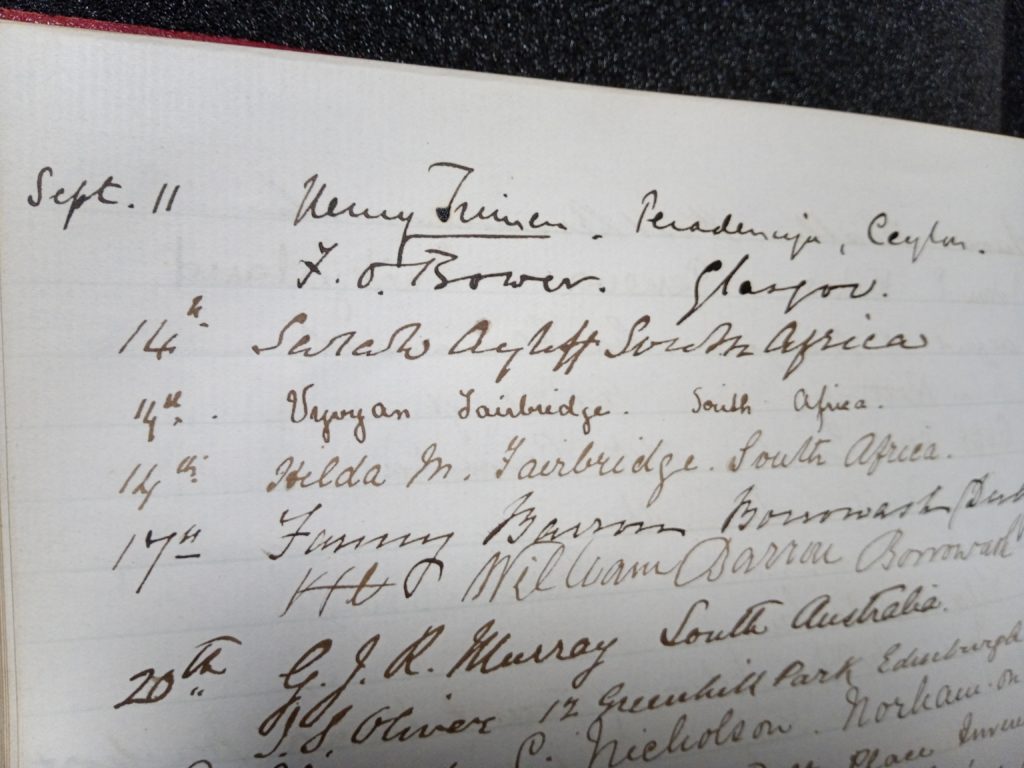 Sept. 11 Henry Trimen. Peradeniya, Ceylon.
F. O. Bower. Glasgow.
14th Sarah Ayliff South Africa
14th. Vyvyan Fairbridge. South Africa.
14th Hilda M. Fairbridge. South Africa.
17th Fanny Barron Borrowash
William Barron Borrowash
20th G. J. R. Murray South Australia.
J. S. Oliver 12 Greenhill Park Edinburgh
C. Nicholson. Norham-on
Place